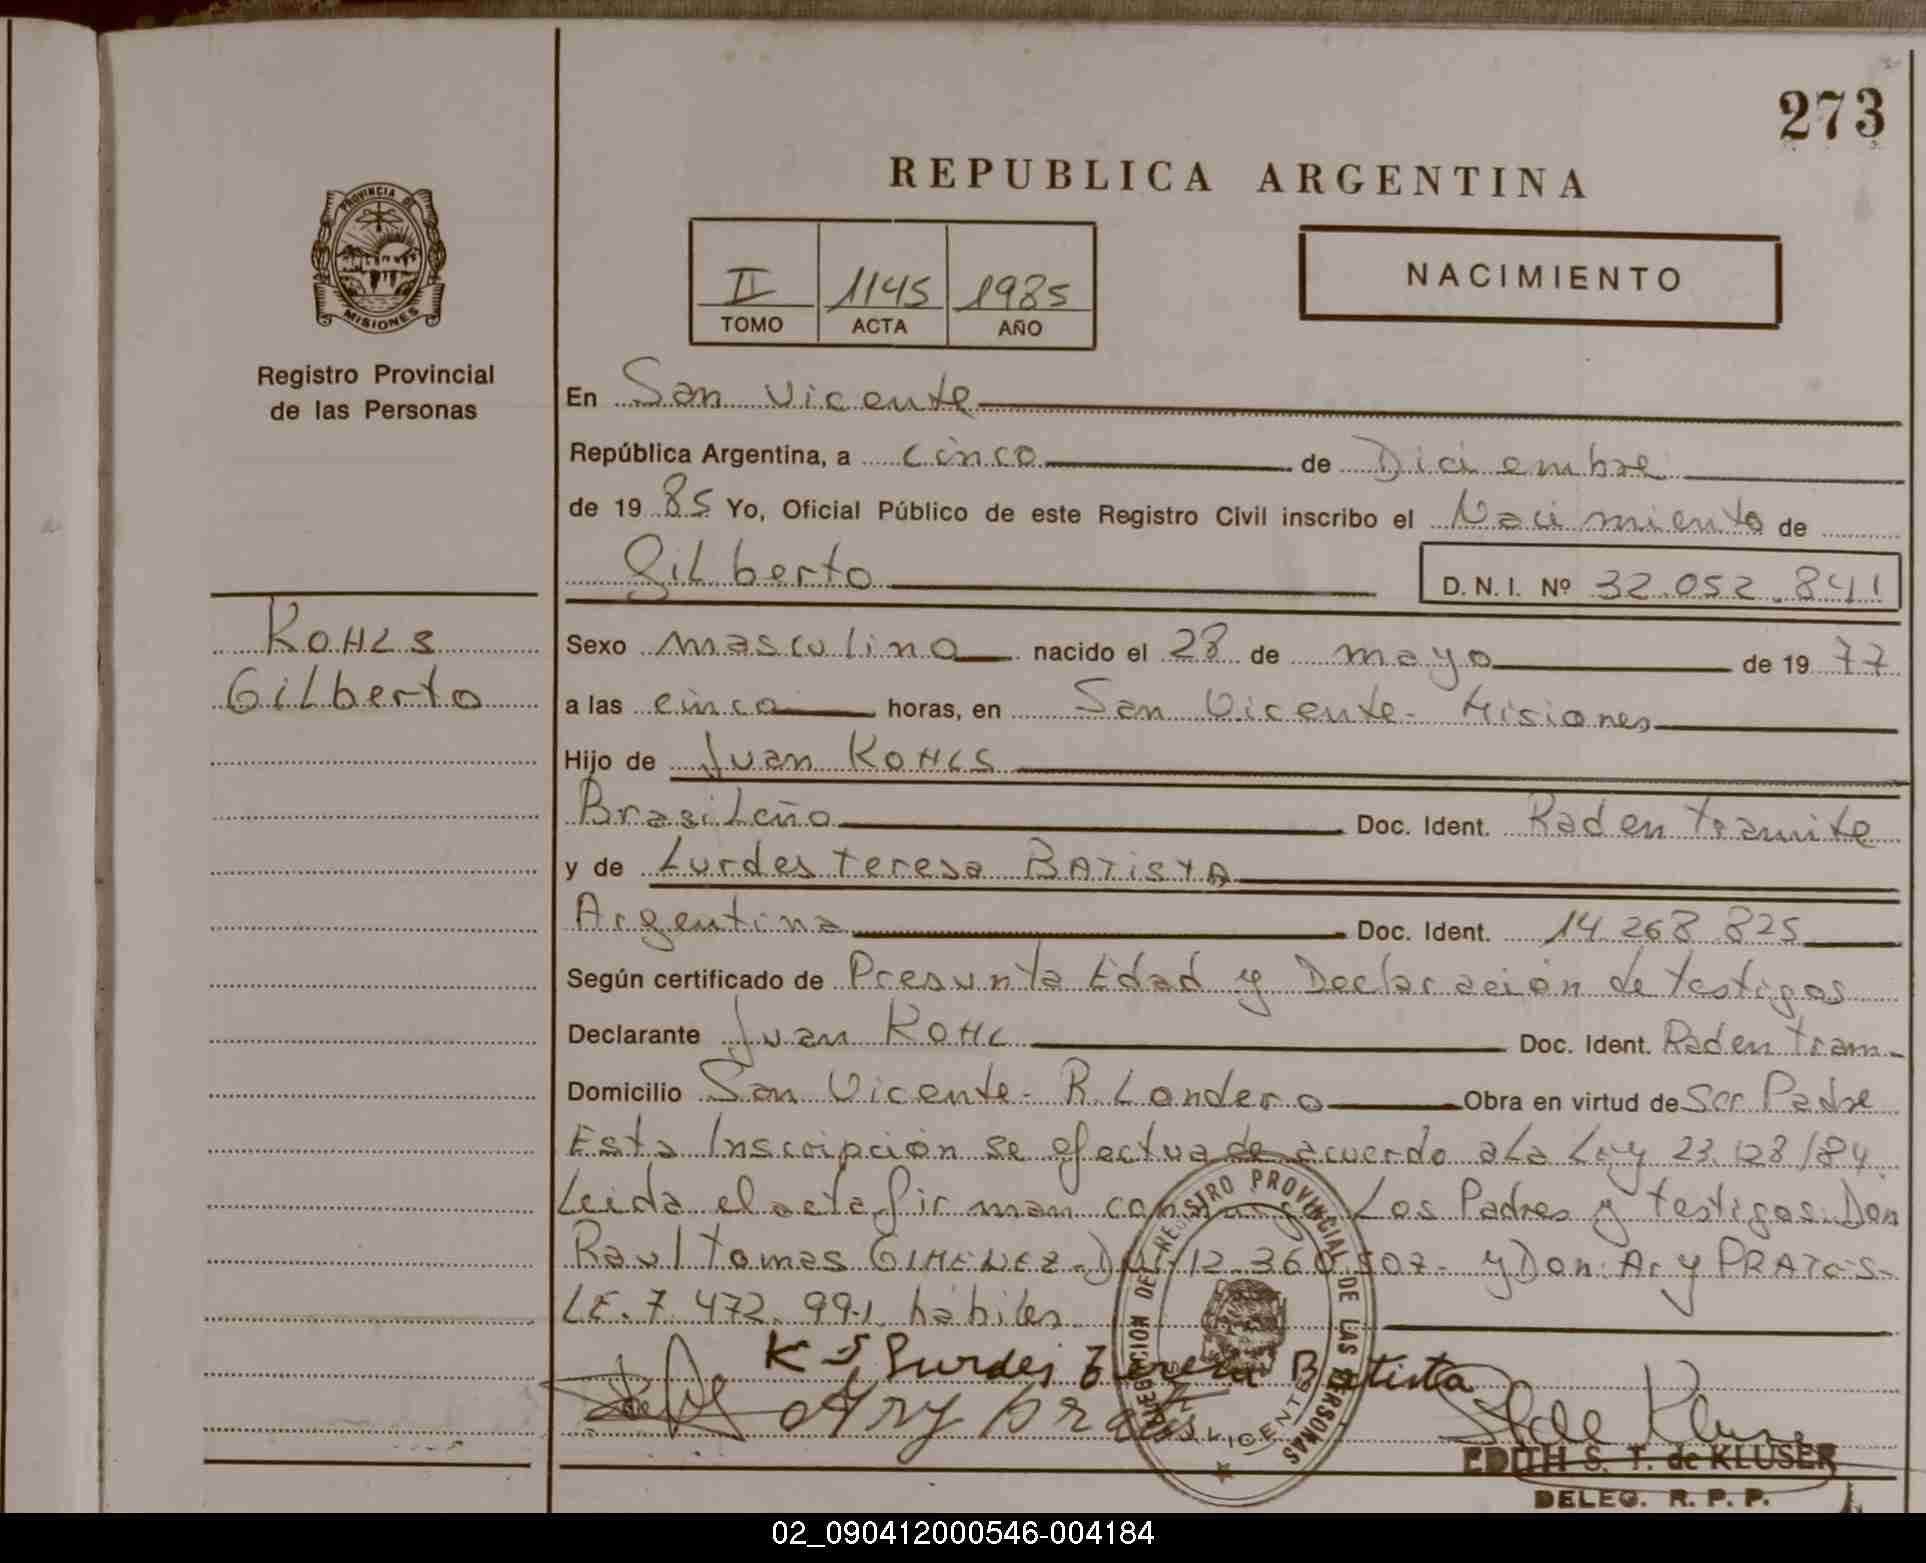 273
REPUBLICA ARGENTINA
PROVINCIA DE
MISIONES
Registro Provincial
de las Personas
II 1145 1985
TOMO ACTA AÑO
NACIMIENTO
En San Vicente
República Argentina, a cinco de Diciembre
de 19 85 Yo, Oficial Público de este Registro Civil inscribo el Nacimiento de
Gilberto
D. N. I. Nº 32.052.841
KOHLS
Gilberto
Sexo masculino nacido el 28 de mayo de 19 77
a las cinco horas, en San Vicente - Misiones
Hijo de Juan KOHLS
Brasileño Doc. Ident. Rad en tramite
y de Lurdes Teresa BATISTA
Argentina Doc. Ident. 14.268.825
Según certificado de Presunta Edad y Declaración de testigos
Declarante Juan KOHL Doc. Ident. Rad en tram-
Domicilio San Vicente - R. Londero Obra en virtud de Ser Padre
Esta Inscripción se efectua de acuerdo a la Ley 23.128/84
Leida el acta firman conmigo Los Padres y testigos Don
Raul tomas GIMENEZ - DNI-12.360.507- y Don Ary PRATES-
LE. 7.472.991 habiles
K J Lurdes Teresa Batista
Ary Prates
DELEGACION DEL REGISTRO PROVINCIAL DE LAS PERSONAS
S. VICENTE
S T de Kluser
EDITH S. T. de KLUSER
DELEG. R. P. P.
02_090412000546-004184